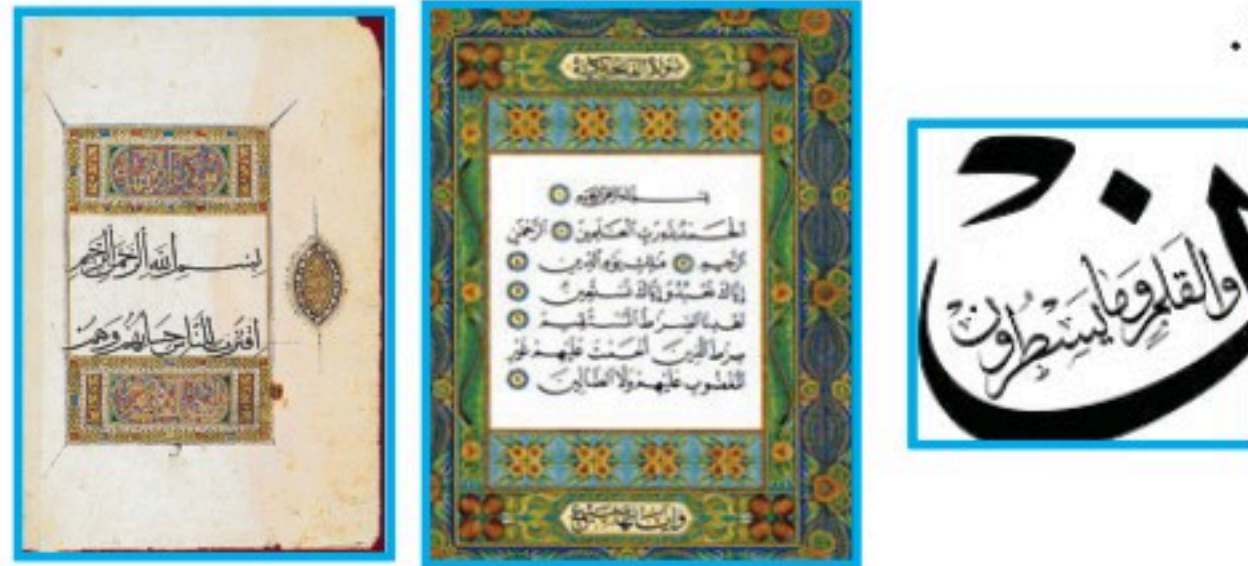 بسم الله الرحمن الرحيم
اقترب للناس حسابهم وهم
سورة الفاتحة مكية
بسم الله الرحمن الرحيم ١
الحمد لله رب العلمين ٢ الرحمن
الرحيم ٣ ملك يوم الدين ٤
إياك نعبد وإياك نستعين ٥
اهدنا الصراط المستقيم ٦
صراط الذين أنعمت عليهم غير
المغضوب عليهم ولا الضالين ٧
وآياتها سبع
ن
والقلم وما يسطرون